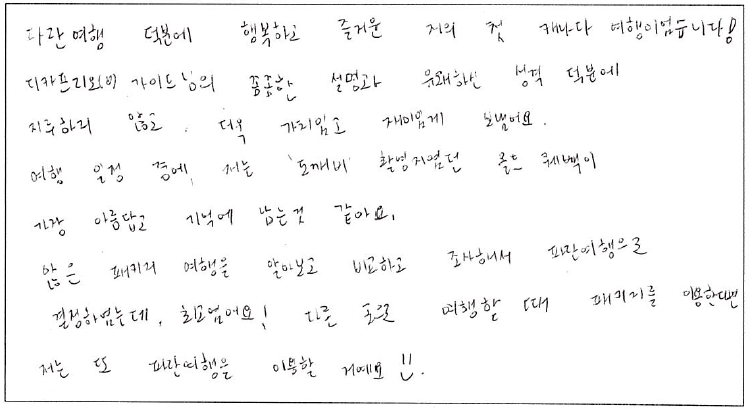 파란여행 덕분에 행복하고 즐거운 저의 첫 캐나다 여행이었습니다!
디카프리오(이) 가이드님의 꼼꼼한 설명과 유쾌하신 성격 덕분에
지루하지 않고, 더욱 가치있고 재미있게 보냈어요.
여행 일정 중에, 저는 '도깨비' 촬영지였던 올드 퀘백이
가장 아름답고 기억에 남는것 같아요.
많은 패키지 여행을 알아보고 비교하고 조사해서 파란여행으로
결정하였는데, 최고였어요! 다른 곳을 여행할 때 패키지를 이용한다면
저는 또 파란여행을 이용할 거예요!!.